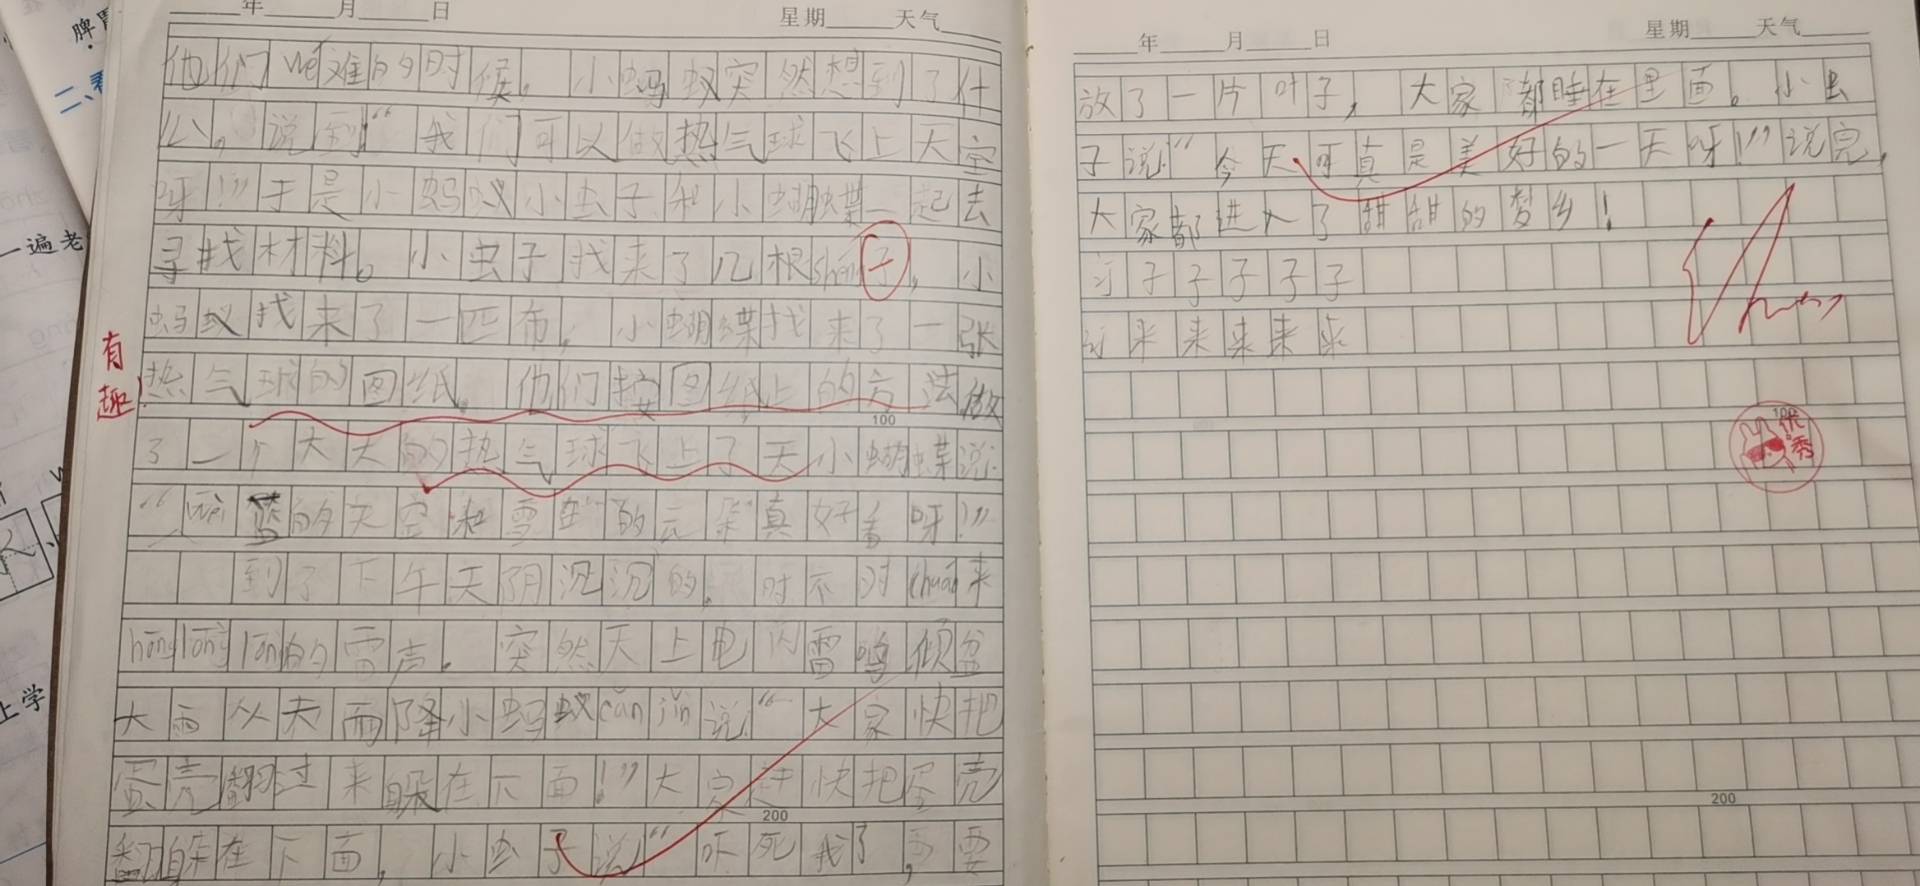 年 月 日 星期 天气
他们wéi难的时候，小蚂蚁突然想到了什
么，说到“我们可以做热气球飞上天空
呀！”于是小蚂蚁小虫子和小蝴蝶一起去
寻找材料。小虫子找来了几根shéng子，小
蚂蚁找来了一匹布，小蝴蝶找来了一张
有趣！
热气球的图纸。他们按图纸上的方法做
100
了一个大大的热气球飞上了天小蝴蝶说：
“wèi蓝的天空和雪白的云朵真好看呀！”
到了下午天阴沉沉的，时不时chuán来
hōnglónglóng的雷声。突然天上电闪雷鸣倾盆
大雨从天而降小蚂蚁jǐn说“大家快把
蛋壳翻过来躲在下面！”大家赶快把蛋壳
200
翻躲在下面，小虫子说“吓死我了，
年 月 日 星期 天气
放了一片叶子，大家都睡在里面。小虫
子说“今天可真是美好的一天呀！”说完，
大家都进入了甜甜的梦乡！
订子子子子子
订来来来来来
100
优秀
200
脾胃
二、看
一遍老
上学